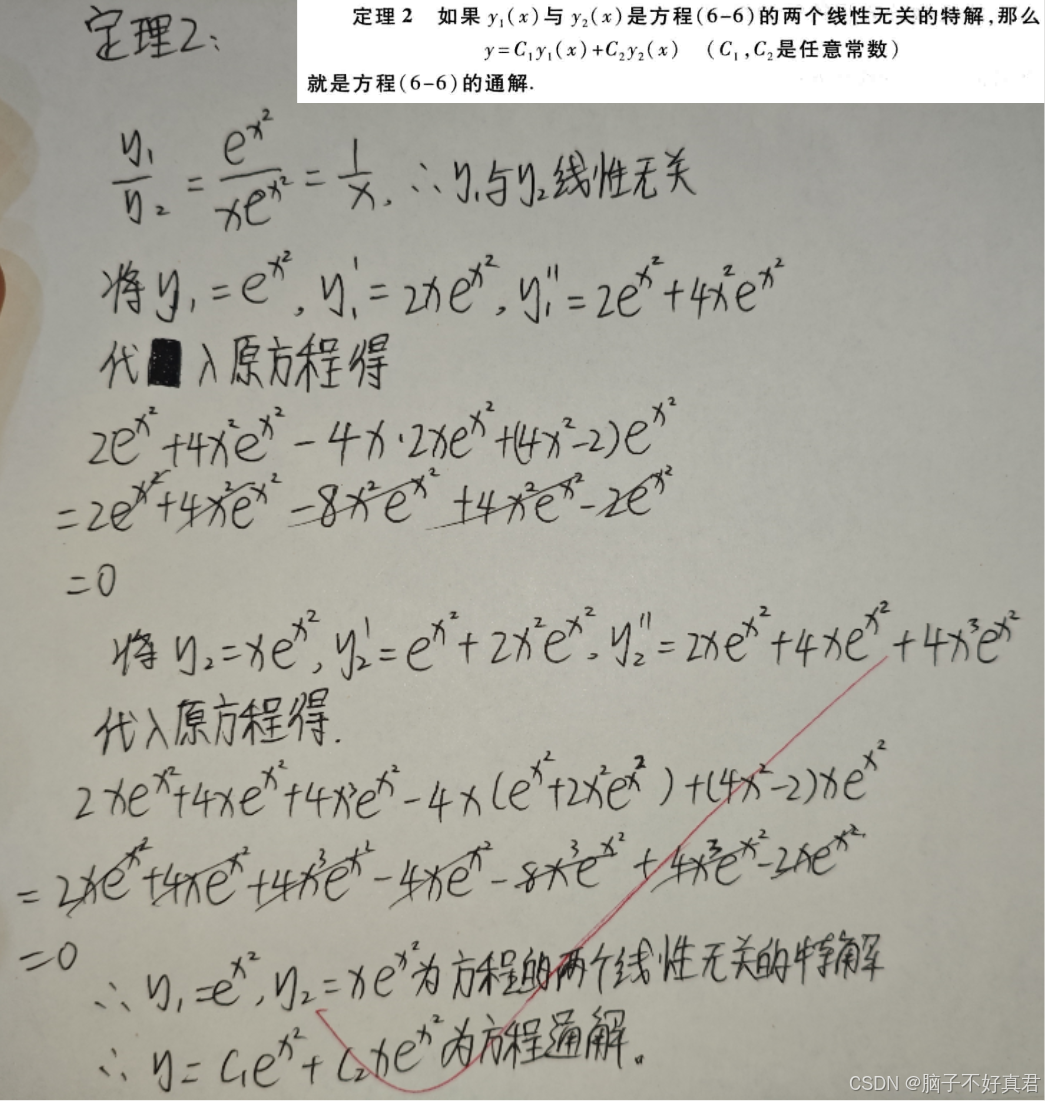 定理2:
定理2 如果y₁(x)与y₂(x)是方程(6-6)的两个线性无关的特解,那么
y=C₁y₁(x)+C₂y₂(x) (C₁,C₂是任意常数)
就是方程(6-6)的通解.
y₁/y₂ = e^{x²}/(xe^{x²}) = 1/x. ∴y₁与y₂线性无关
将y₁=e^{x²}, y₁'=2xe^{x²}, y₁''=2e^{x²}+4x²e^{x²}
代入原方程得
2e^{x²}+4x²e^{x²}-4x·2xe^{x²}+(4x²-2)e^{x²}
=2e^{x²}+4x²e^{x²}-8x²e^{x²}+4x²e^{x²}-2e^{x²}
=0
将y₂=xe^{x²}, y₂'=e^{x²}+2x²e^{x²}, y₂''=2xe^{x²}+4xe^{x²}+4x³e^{x²}
代入原方程得.
2xe^{x²}+4xe^{x²}+4x³e^{x²}-4x(e^{x²}+2x²e^{x²})+(4x²-2)xe^{x²}
=2xe^{x²}+4xe^{x²}+4x³e^{x²}-4xe^{x²}-8x³e^{x²}+4x³e^{x²}-2xe^{x²}
=0
∴y₁=e^{x²}, y₂=xe^{x²}为方程的两个线性无关的特解
∴y=C₁e^{x²}+C₂xe^{x²}为方程通解。
CSDN @脑子不好真君